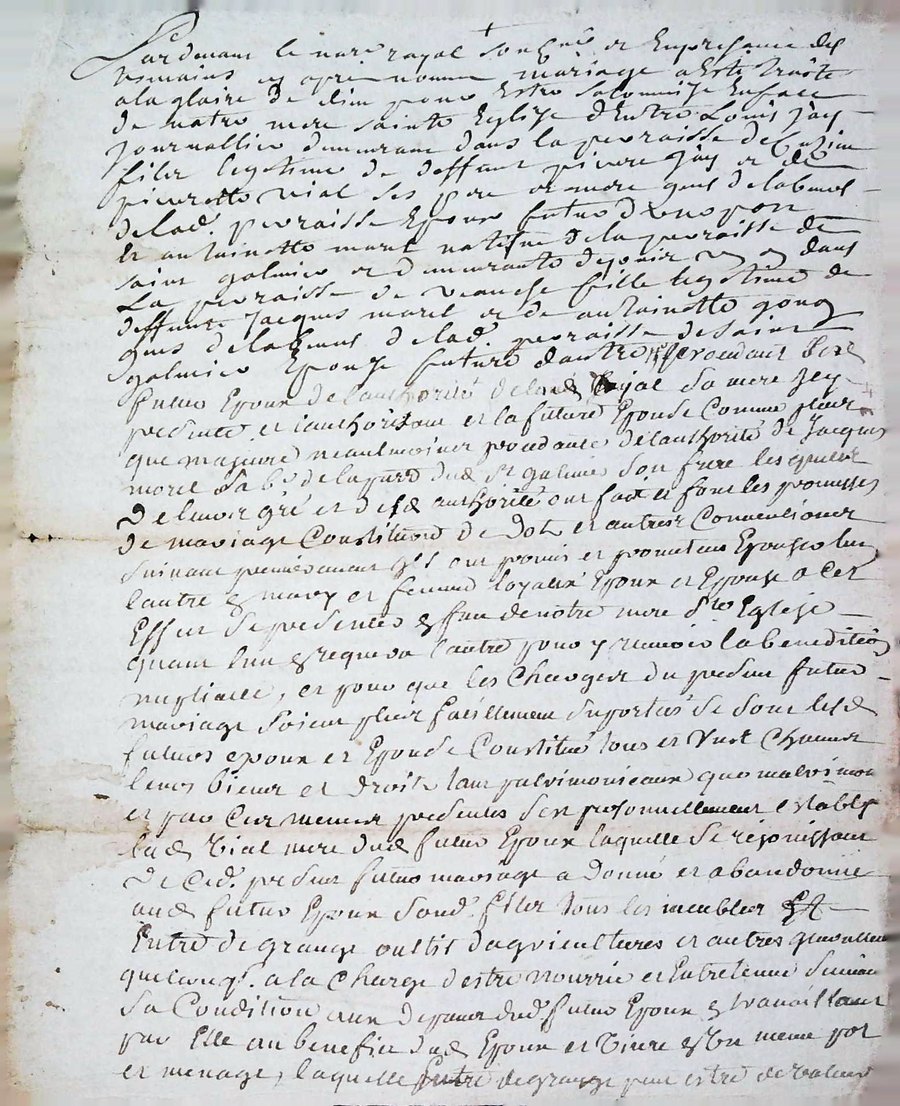 Pardevant le nore royal soubsné et En presence des
tesmoins cy apres nommé mariage a Este traité
a la gloire de dieu pour Estre solomnisé En face
de notre mere sainte Eglise d'Entre Louis Jay
journallier demeurant dans la perroisse de
fils legitime de deffunt pierre Jay et de
pierrette vial ses pere et mere gens de labeur
de lad. perroisse Epoux futur d'une part
Et antoinette morel native de la perroisse de
saint galmier et demeurante depuis dans
La perroisse de veauche fille legitime de
deffunt Jacques morel et de antoinette
gens de labeur de lad. perroisse de saint
galmier Epouze future d'autre procedant led
futur Epoux de l'authorité de lad vial sa mere Icy
presente et l'authorisant et la future Epouse Comme
que majeure neantmoins procedante de l'authorité de Jacques
morel de la pssé dud St galmier son frere lesquelles
De leur gré et desd authorité ont fait et font les promesses
de mariage Constitution de Dot et autres Conventions
suivant premierement ils ont promis et promettent Epouser lun
lautre Et mary et femme loyaux Epoux et Epouse a Cet
Effet se presenter En face de notre mere Ste Eglise
quant lun Et requera lautre pour y recevoir la benediction
nuptialle, et pour que les Charges du present futur
mariage soient plus facillement suportés se sont lesd
futurs epoux et Epouse Constitué tous et Un Chacuns
leurs biens et droits tant patrimoniaux que
et par Ces memes presentes s'est personnellement establye
lad Vial mere dud futur Epoux laquelle se rejouissant
De Ced. present futur mariage a Donné et abandonné
aud futur Epoux sond. fils tous les meubles
Entre de grange outils dagricultures et autres generallement
quelconqs. a la Charge d'estre nourrie et Entretenue suivant
sa Condition aux depans dud. futur Epoux Et travaillant
par Elle au benefice dud Epoux et Vivre En Un meme pot
et menage, laquelle Entre de grange peut estre de valeur